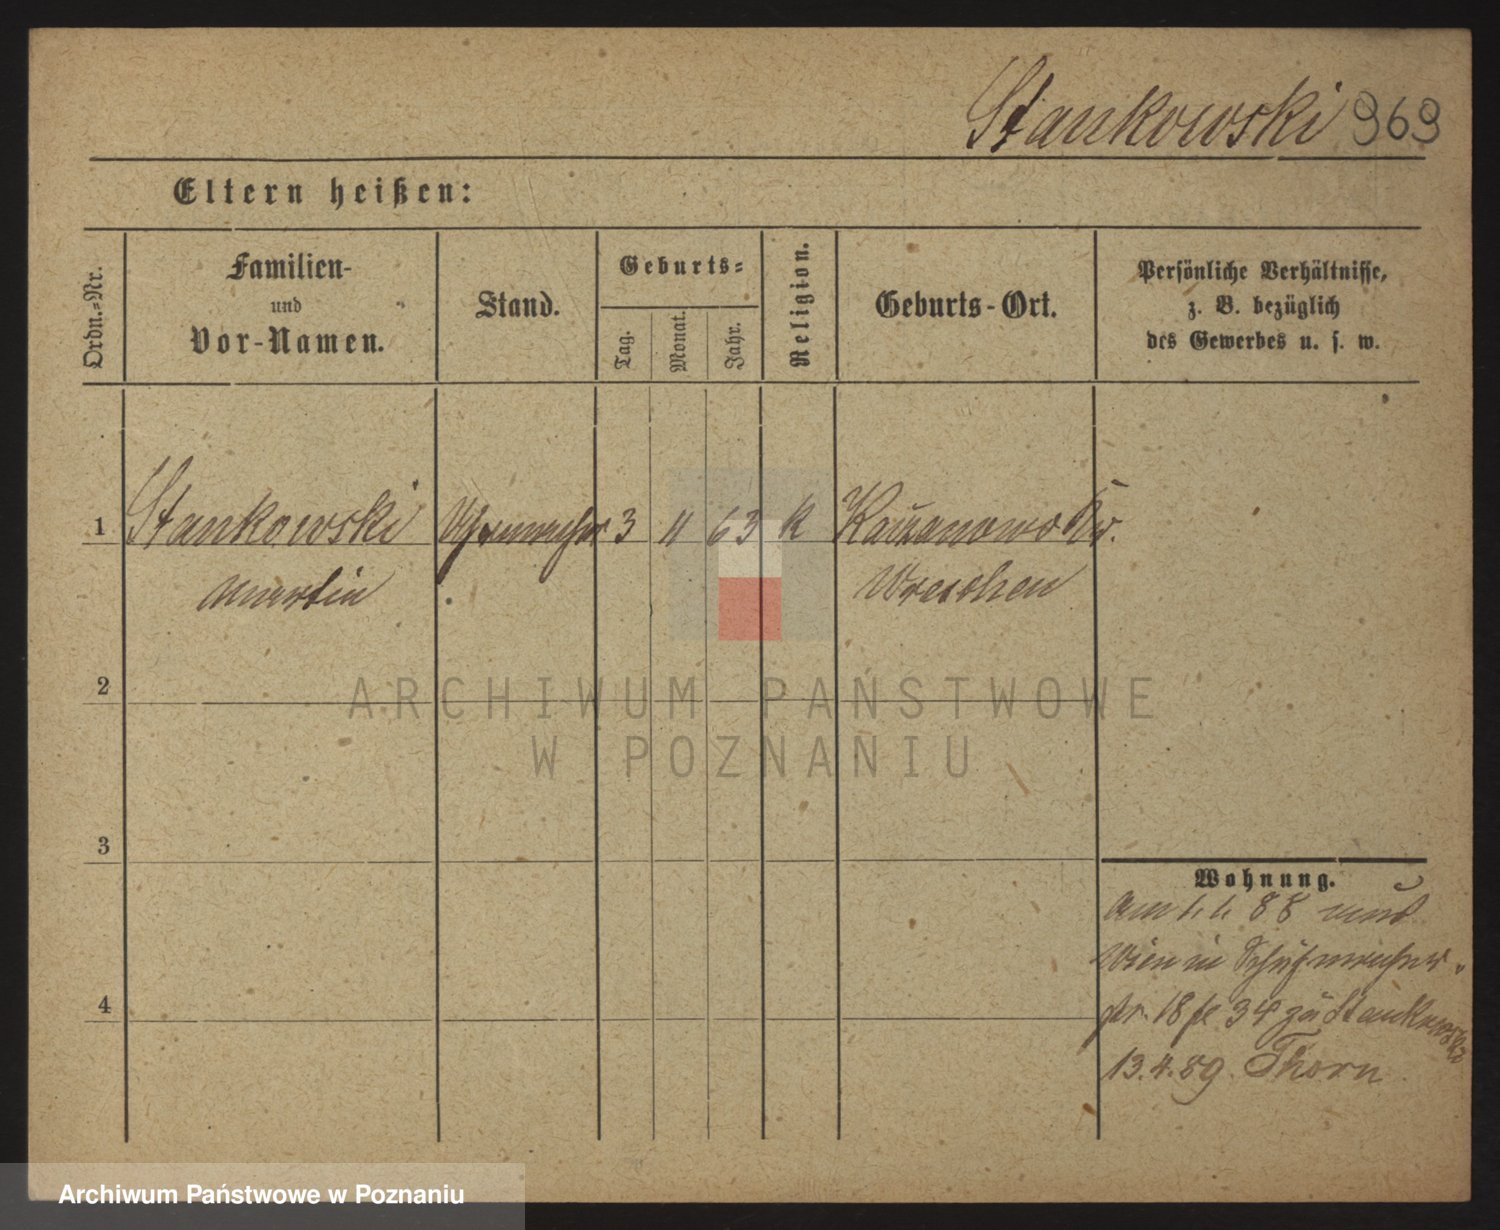 Stankowski 969
Eltern heißen:
Ordn.-Nr.
Familien-
und
Vor-Namen.
Stand.
Geburts-
Tag.
Monat.
Jahr.
Religion.
Geburts-Ort.
Persönliche Verhältnisse,
z. B. bezüglich
des Gewerbes u. s. w.
1 Stankowski 3 11 63 K Kr.
Martin Wreschen
2
3
4
Wohnung.
am 1. 88
Wien in
18 34 zu Stankowski
13.4.89. Thorn
ARCHIWUM PAŃSTWOWE
W POZNANIU
Archiwum Państwowe w Poznaniu